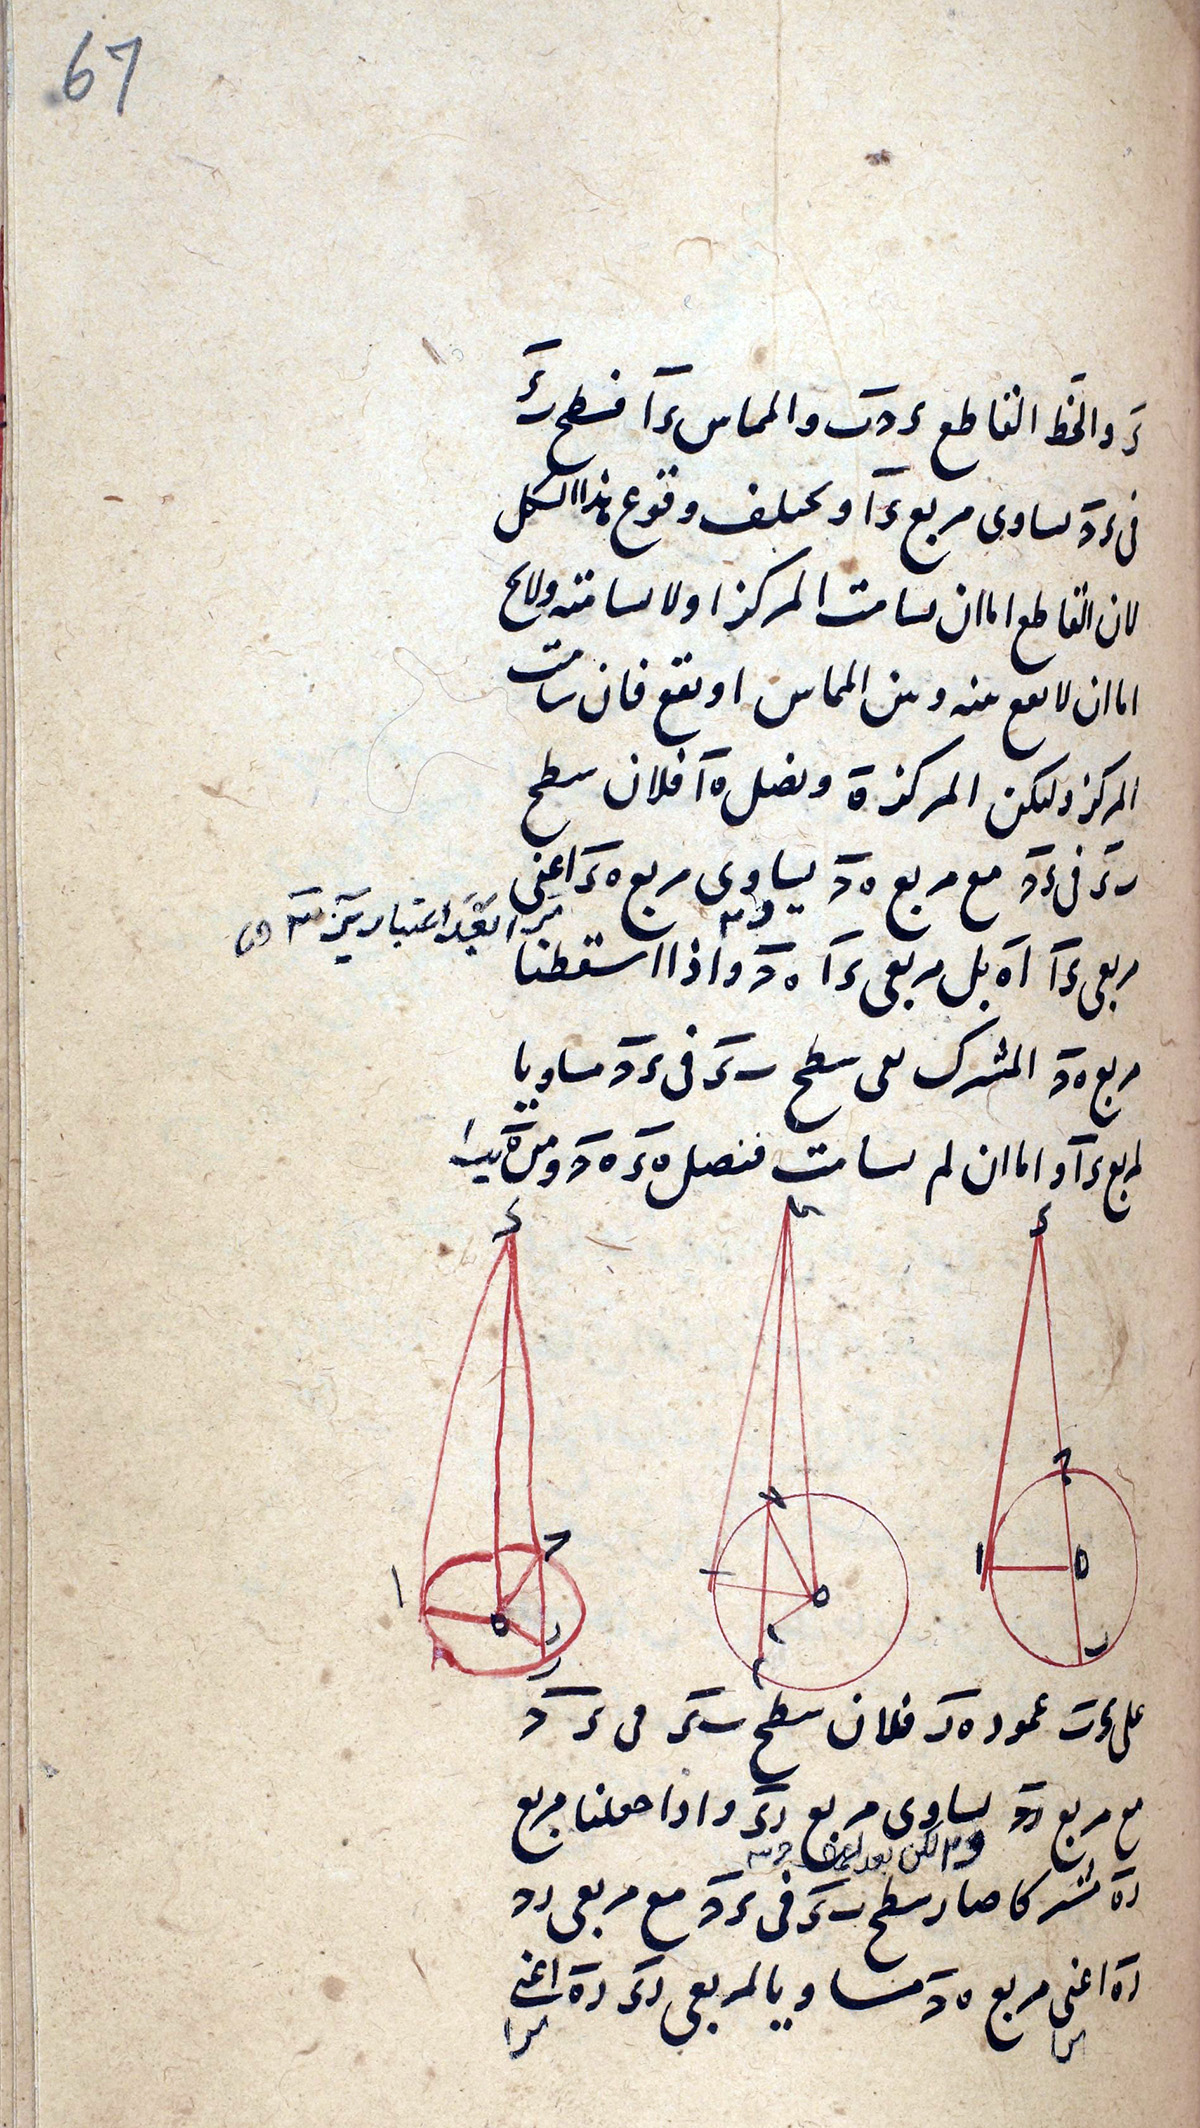 67
ءَ والخط القاطع ءحـب والمماس ءا فسطح بء
فى ءحـ يساوى مربع ءا ويختلف وقوع هذا الشكل
لان القاطع اما ان يسامت المركز او لا يسامته ولا يخ
اما ان لا يقع بينه وبين المماس او يقع فان سامت
المركز وليكن المركز ه ونصل ه ا فلان سطح
بء فى ءحـ مع مربع ه حـ يساوى مربع ه ء اعنى
مربعى ءا اه بل مربعى ءا ه حـ واذا اسقطنا
مربع ه حـ المشترك بقى سطح بء فى ءحـ مساويا
لمربع ءا واما ان لم يسامت فنصل ه ء ه حـ ومن ه
ء ء ء
حـ حـ حـ
ا ه ا ه ا ه
ب ر ب ر ب
على ءب عمود ه ر فلان سطح بء فى ءحـ
مع مربع رحـ يساوى مربع رء واذا جعلنا مربع
ره مشتركا صار سطح بء فى ءحـ مع مربعى رحـ
ره اعنى مربع ه حـ مساويا لمربعى رء ره اعنى